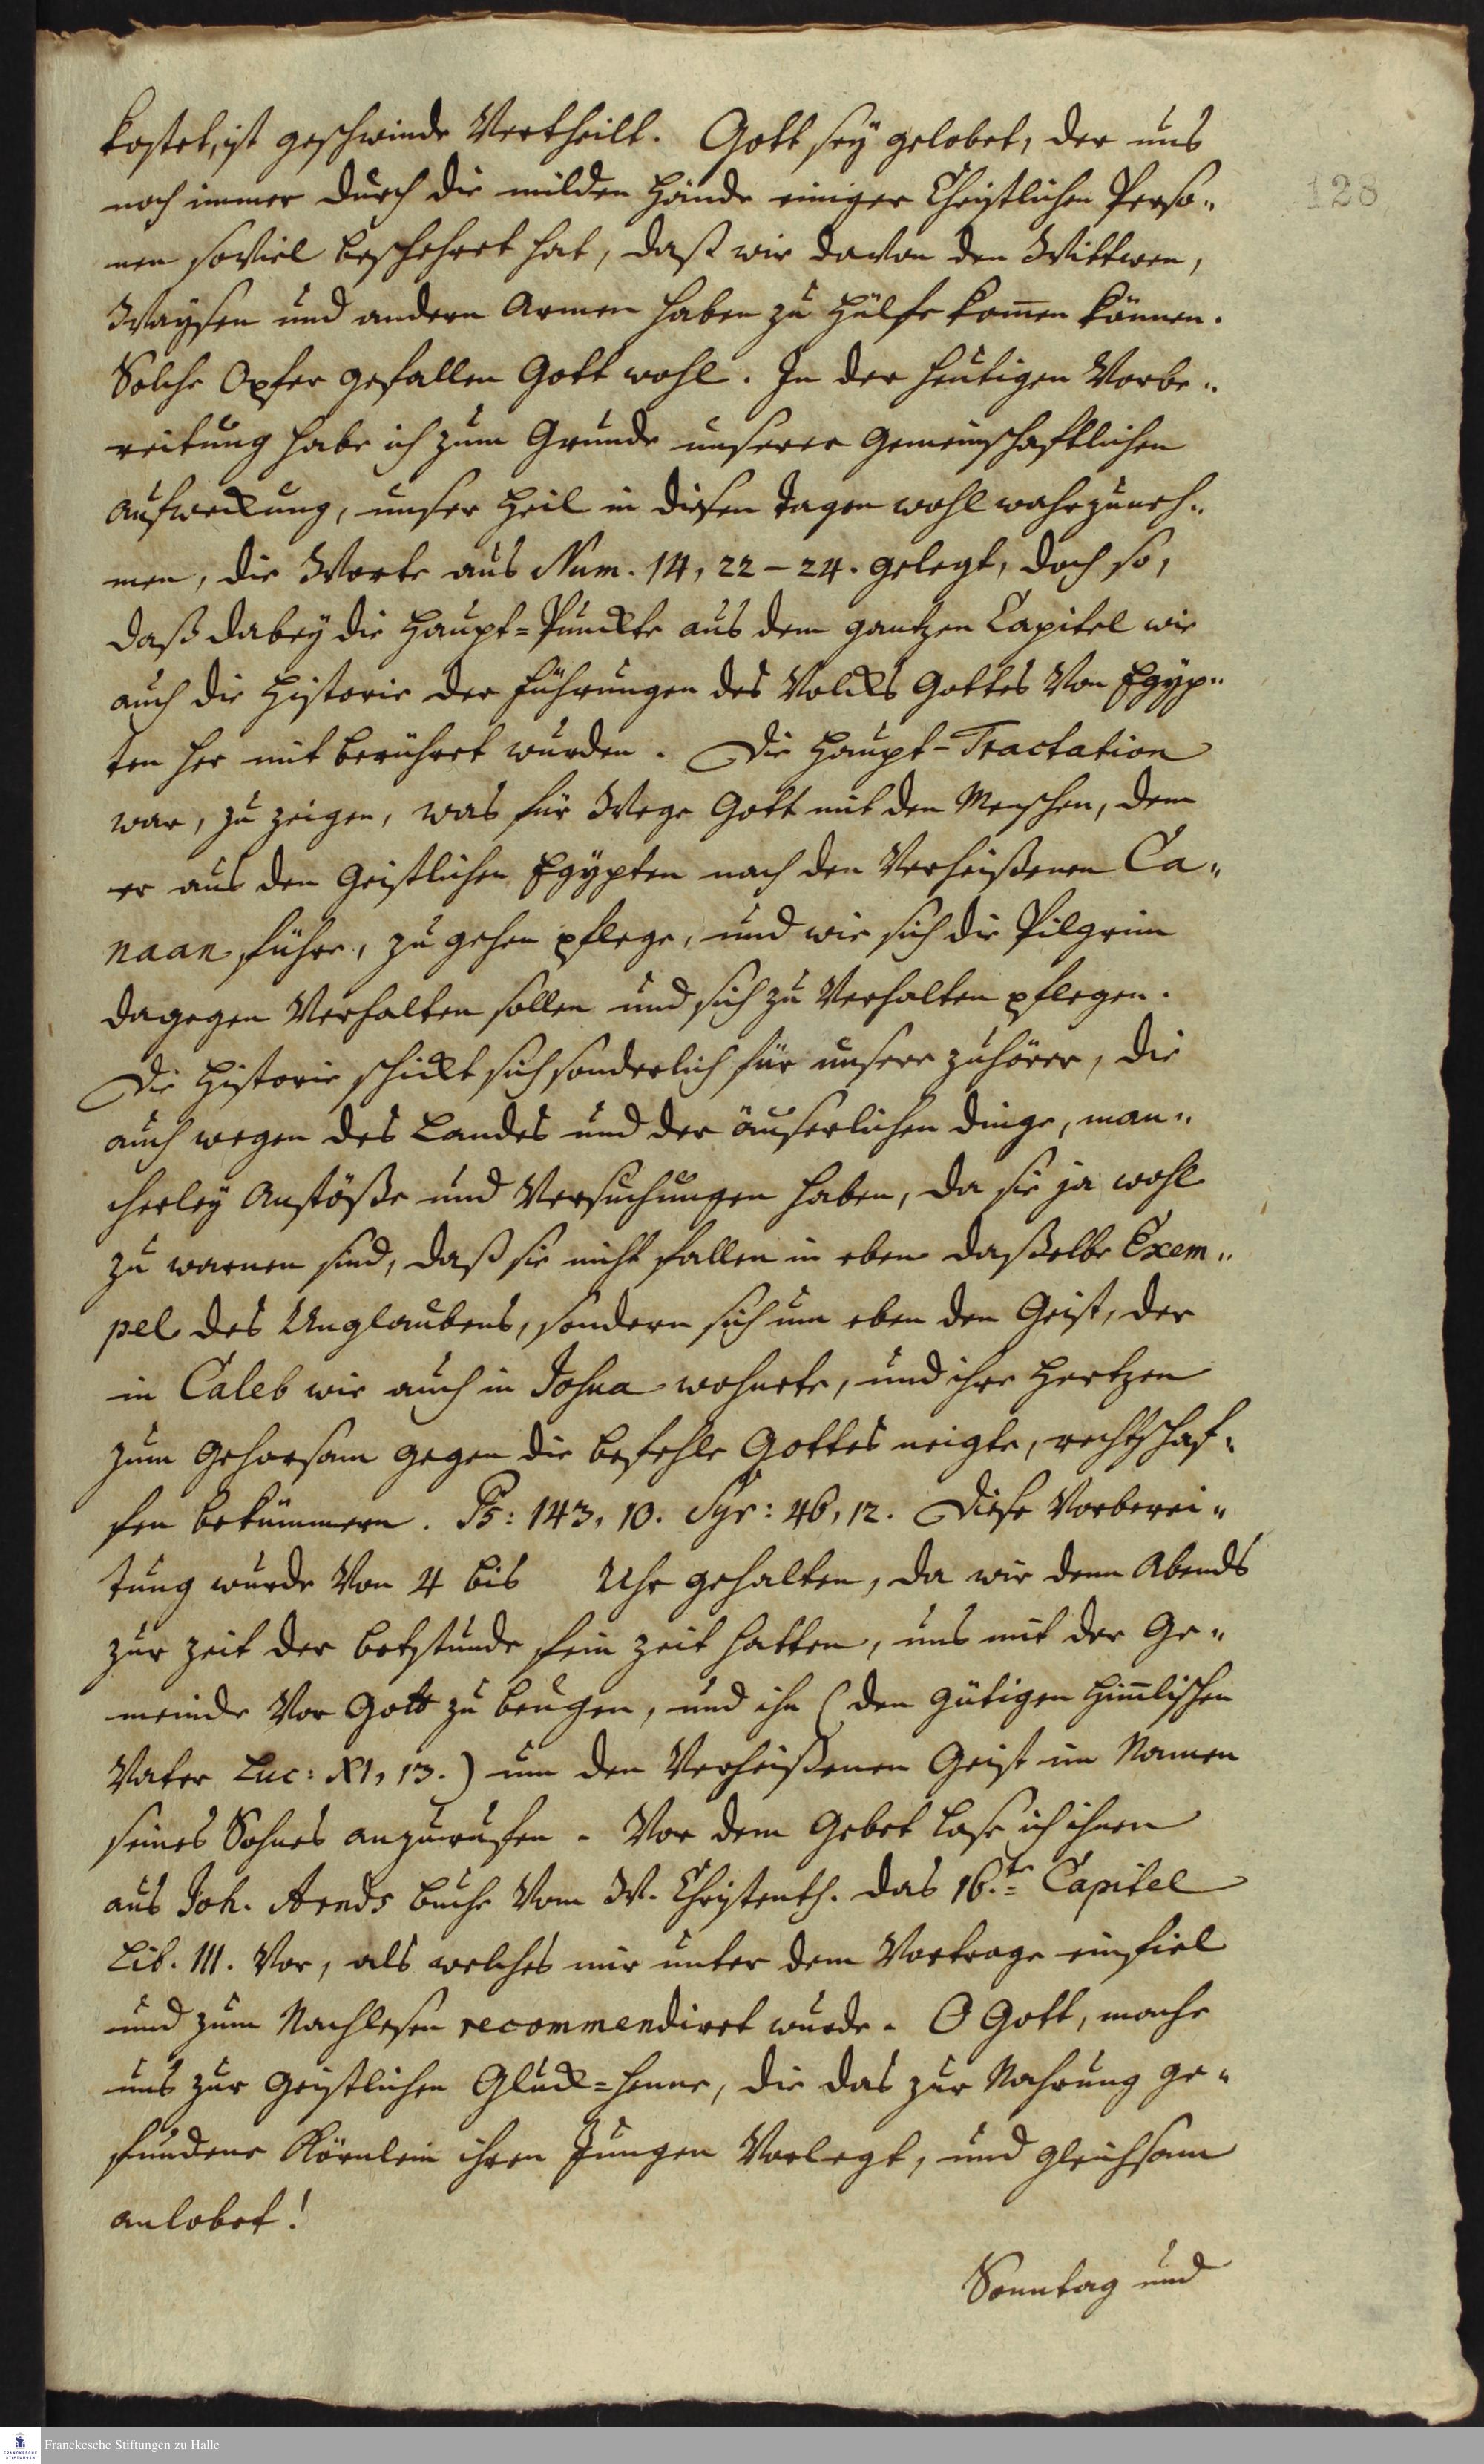 kostet, ist geschwinde Vertheilt. Gott sey gelobet, der uns
128
noch immer durch die milden Hände einiger Christlichen Perso„
nen soviel beschehret hat, daß wir davon den Wittwen,
Waysen und andern Armen haben zu Hülfe kom̄en können.
Solche Opfer gefallen Gott wohl. In der heutigen Vorbe„
reitung habe ich zum Grunde unserer gemeinschafftlichen
aufweckung, unser Heil in diesen Tagen wohl wahrzuneh„
men, die Worte aus Num. 14, 22–24. gelegt, doch so,
daß dabey die Haupt=Punckte aus dem gantzen Capitel wie
auch die Historie der Führungen des Volcks Gottes Von Egyp„
ten her mit berühret wurden. Die Haupt-Tractation
war, zu zeigen, was für Wege Gott mit den Menschen, dem
er aus den Geistlichen Egypten nach den Verheißenen Ca„
naan führe, zu gehen pflege, und wie sich die Pilgrim
dagegen Verhalten sollen und sich zu Verhalten pflegen.
Die Historie schickt sich sonderlich für unsere zuhörer, die
auch wegen des Landes und der äuserlichen dinge, man„
cherley Anstöße und Versuchungen haben, da sie ja wohl
zu warnen sind, daß sie nicht fallen in eben daßelbe Exem„
pel des Unglaubens, sondern sich um eben den Geist, der
in Caleb wie auch in Josua wohnete, und ihre Hertzen
zum Gehorsam gegen die befehle Gottes neigte, rechtschaf„
fen bekümmern. Ps: 143, 10. Syr: 46, 12. Diese Vorberei„
tung wurde Von 4 bis Uhr gehalten, da wir denn Abends
zur Zeit der betstunde fein Zeit hatten, uns mit der Ge„
meinde Vor Gott zu beugen, und ihn (den gütigen him̄lischen
Vater Luc: XI, 13.) um den Verheißenen Geist im Namen
seines Sohnes anzuruffen. Vor dem Gebet lase ich ihnen
aus Joh. Arnds buche Vom W. Christenth. das 16.te Capitel
Lib. III. Vor, als welches mir unter dem Vortrage einfiel
und zum Nachlesen recommendiret wurde. O Gott, mache
uns zur geistlichen Gluck=henne, die das zur Nahrung ge„
fundene Körnlein ihren Jungen Vorlegt, und gleichsam
anlobet!
Sonntag und
Franckesche Stiftungen zu Halle